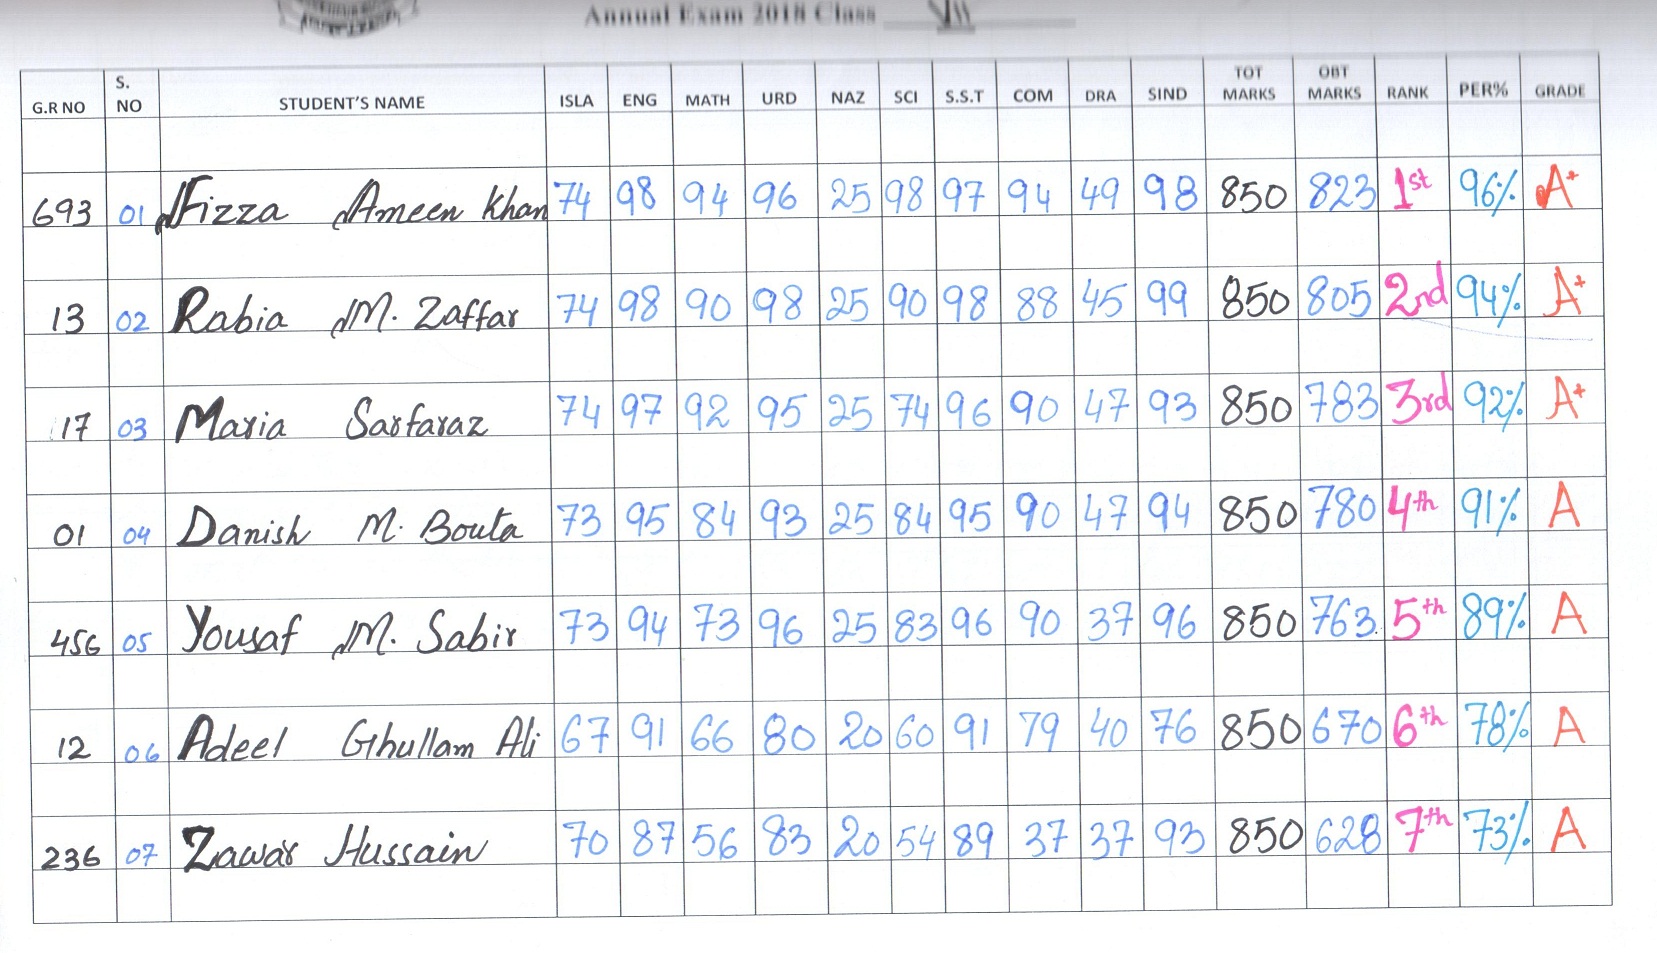 Annual Exam 2018 Class VII
G.R NO S. NO STUDENT'S NAME ISLA ENG MATH URD NAZ SCI S.S.T COM DRA SIND TOT MARKS OBT MARKS RANK PER% GRADE
693 01 Fizza Ameen Khan 74 98 94 96 25 98 97 94 49 98 850 823 1st 96% A+
13 02 Rabia M. Zaffar 74 98 90 98 25 90 98 88 45 99 850 805 2nd 94% A+
17 03 Maria Sarfaraz 74 97 92 95 25 74 96 90 47 93 850 783 3rd 92% A+
01 04 Danish M. Bouta 73 95 84 93 25 84 95 90 47 94 850 780 4th 91% A
456 05 Yousaf M. Sabir 73 94 73 96 25 83 96 90 37 96 850 763 5th 89% A
12 06 Adeel Ghullam Ali 67 91 66 80 20 60 91 79 40 76 850 670 6th 78% A
236 07 Zawar Hussain 70 87 56 83 20 54 89 37 37 93 850 628 7th 73% A